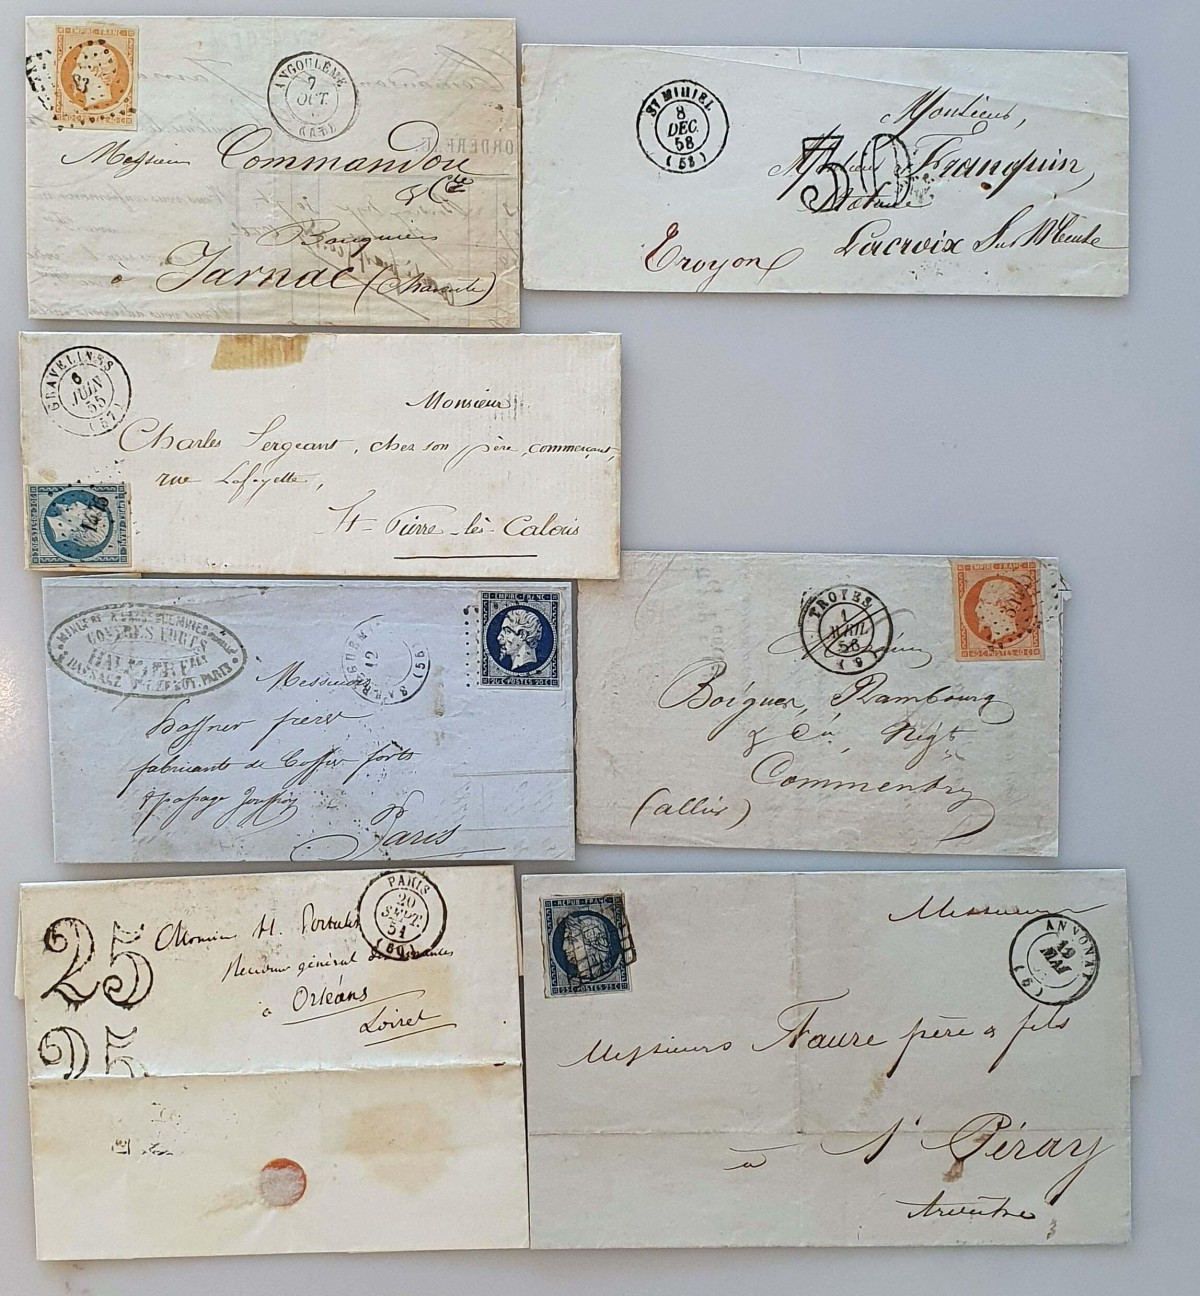 EMPIRE FRANC
40 C 40 C
ANGOULÊME
7
OCT.
(15)
Messieurs Commandon
& Cie
Banquiers
à Jarnac (Charente)
ST MIHIEL
8
DEC.
58
(53)
30
Monsieur,
Monsieur Franquin,
Notaire
Lacroix Sur Meuse
Troyon
GRAVELINES
6
JUIN
55
(57)
1475
Monsieur
Charles Sergeant, chez son père, commerçant,
rue Lafayette,
St-Pierre-lès-Calais
COFFRES FORTS
HAFFNER
PASSAGE JOUFFROY. PARIS
12
(55)
EMPIRE FRANC
20 C POSTES 20 C
Messieurs
Haffner frères
fabricants de Coffres forts
8 passage Jouffroy
Paris
TROYES
1
AVRIL
56
(9)
EMPIRE FRANC
40 C POSTES 40 C
Boigues, Rambourg
& Cie Négts
Commentry
(allier)
25
25
PARIS
20
SEPT.
51
(60)
Monsieur H. Portalis
Receveur général des finances
à Orléans
Loiret
REPUB FRANC
25 C POSTES 25 C
ANNONAY
19
MAI
(6)
Messieurs
Messieurs Faure père & fils
à St Péray
Ardèche